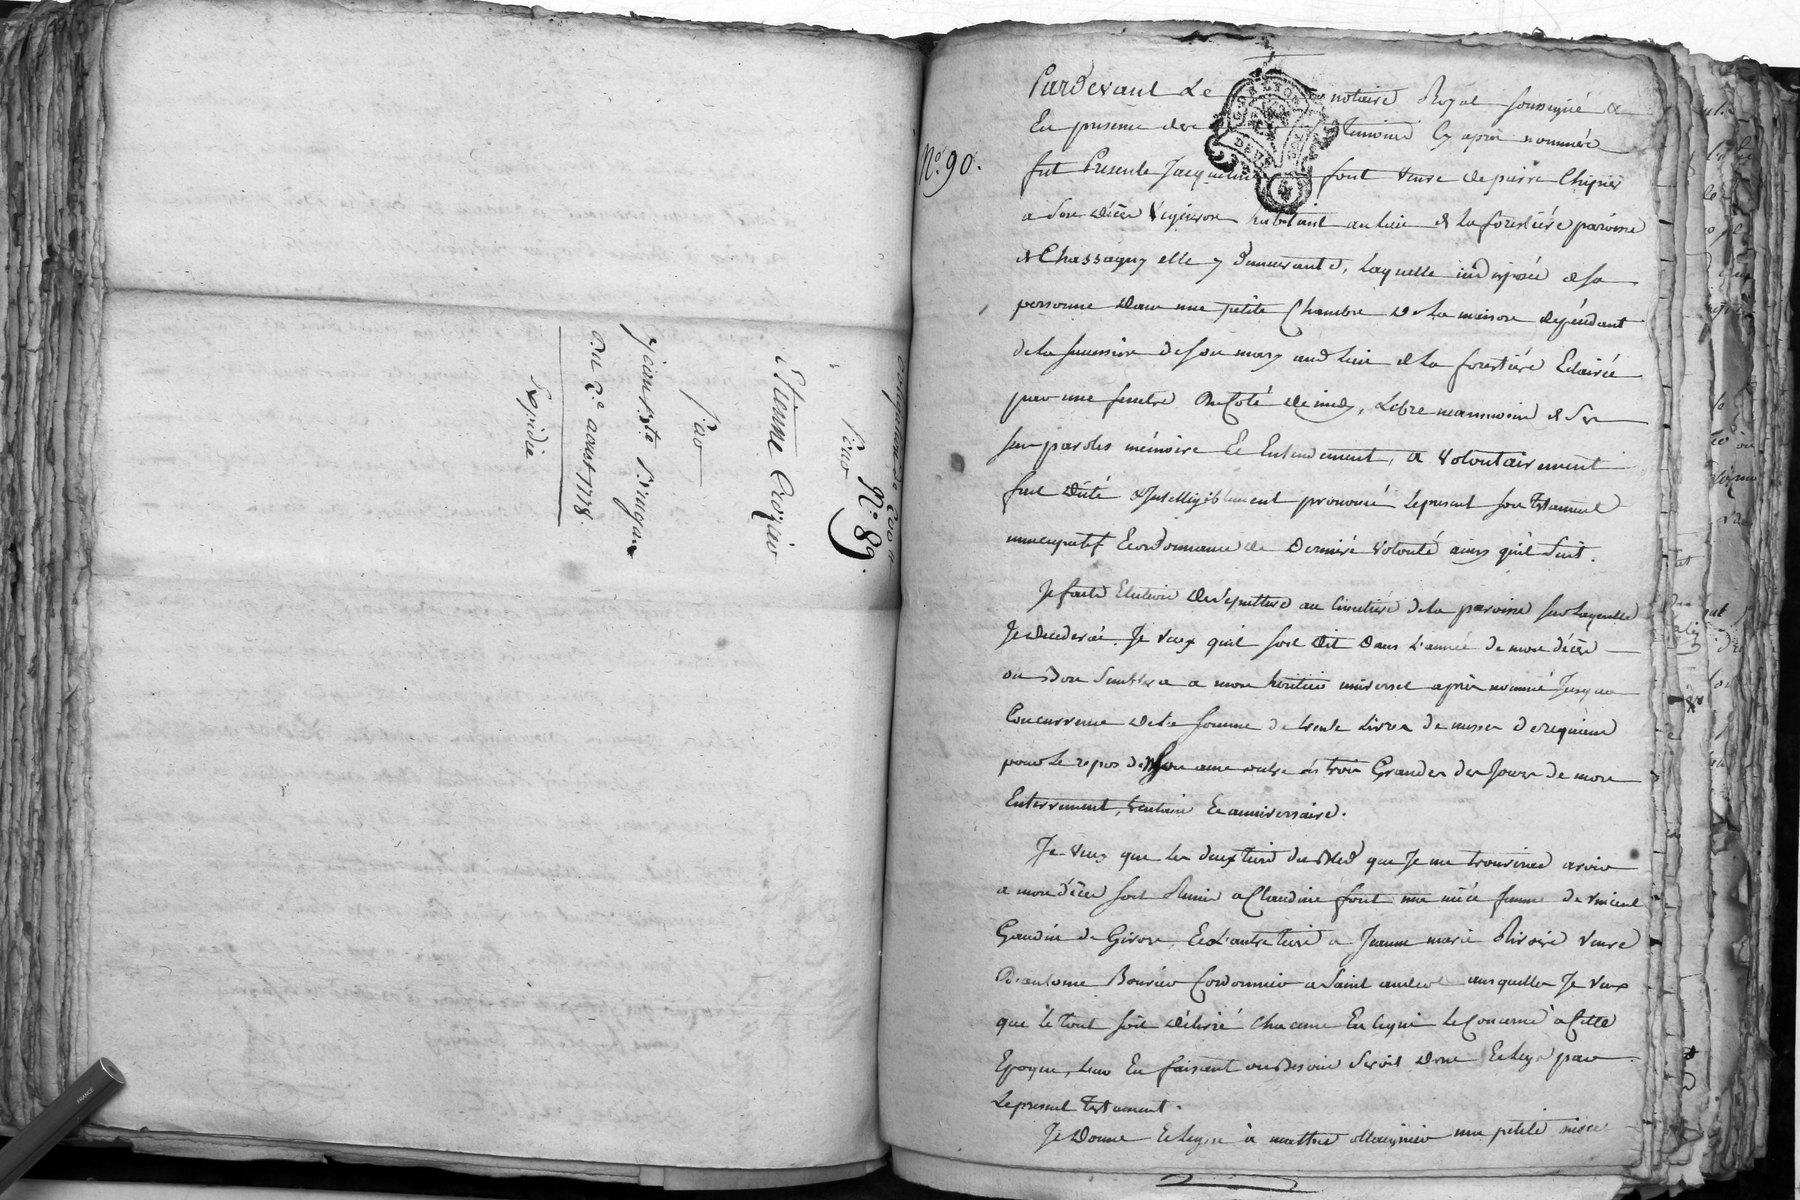 N.° 89.
Etienne Crozier
par
jean B.te Dringan
Du 2.e aoust 1778.
Expédié
N.° 90.
Pardevant Le notaire Royal soussigné &
En presence des temoins Cy après nommés
fut Presente Jacqueline font veuve de pierre Chipier
a son décès vigneron habitant au lieu de la forestière paroisse
de Chassagny elle y demeurante, Laquelle indisposée de sa
personne dans une petite Chambre de la maison dépendant
de la succession de son mary au d lieu de la forestière Eclairée
par une fenetre du Coté de midy, Libre neanmoins de ses
sens paroles mémoire Et Entendement, a volontairement
fait dicté & Intelligiblement prononcé Lepresent son testament
nuncupatif Et ordonnance de derniere volonté ainsy qu'il suit.
Je fais Election de sepulture au Cimetière de la paroisse sur laquelle
Je decederai. Je veux qu'il soit dit dans L'année de mon décès
ou Bon semblera a mon heritier universel après nommé Jusqua
Concurrence de la somme de trente Livres de messes de requiem
pour Le repos de mon ame outre les trois Grandes des Jours de mon
Enterrement, quarantaine Et anniversaire.
Je veux que les deux tiers du Bled que Je me trouverai avoir
a mon décès soit a Claudine font ma niéce femme de vincent
Gaudin de Givors, Et L'autre tiers a Jeanne marie Rivoire veuve
D'antoine Bouvier Cordonnier a Saint andeol ausquelles Je veux
que le tout soit délivré chacune En ce qui Le Concerne a Cette
Epoque, Leur En faisant au Besoin Don Et Legs par
Lepresent testament.
Je Donne Et Legue à ma petite niéce